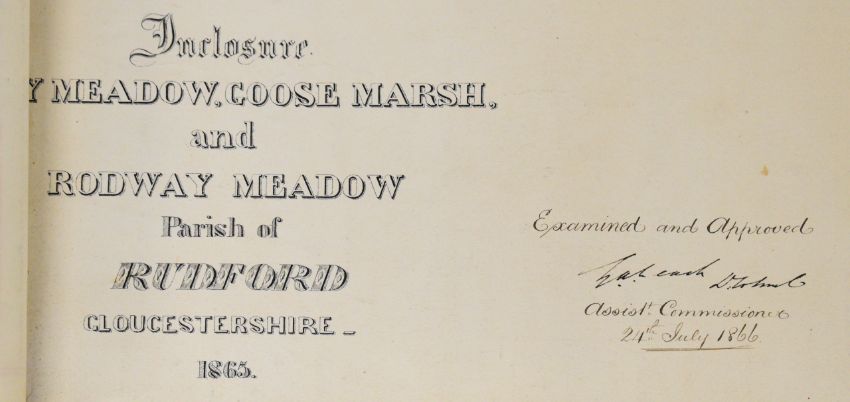 Inclosure
Y MEADOW, GOOSE MARSH,
and
RODWAY MEADOW
Parish of
RUDFORD
GLOUCESTERSHIRE _
1865.
Examined and Approved
Assist.t Commissioner
24th July 1866.